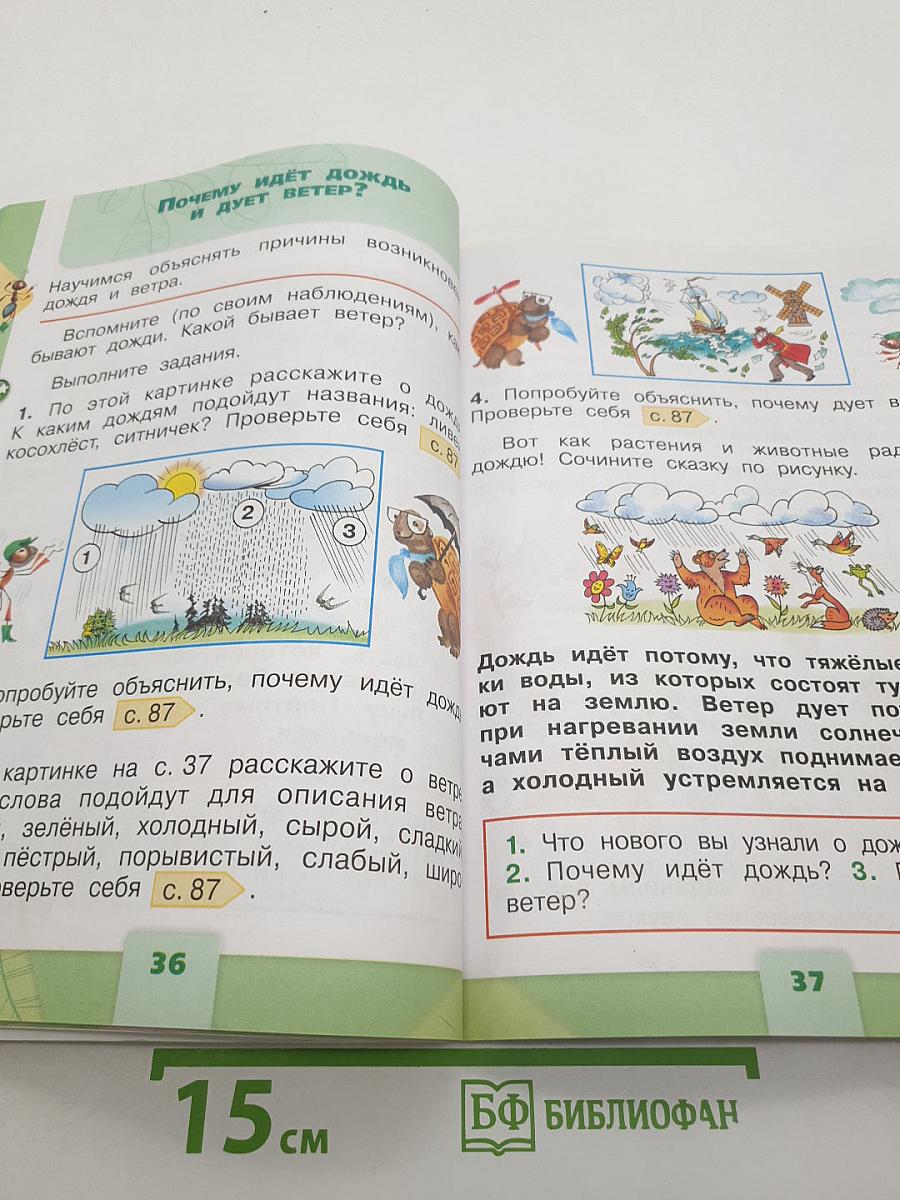 ПОЧЕМУ ИДЁТ ДОЖДЬ
И ДУЕТ ВЕТЕР?
Научимся объяснять причины возникнове
дождя и ветра.
Вспомните (по своим наблюдениям), ка
бывают дожди. Какой бывает ветер?
Выполните задания.
1. По этой картинке расскажите о дожд
К каким дождям подойдут названия: ливе
косохлёст, ситничек? Проверьте себя с. 87
1
2
3
опробуйте объяснить, почему идёт дожд
ерьте себя с. 87.
картинке на с. 37 расскажите о ветре
слова подойдут для описания ветра
й, зелёный, холодный, сырой, сладкий
пёстрый, порывистый, слабый, широ
оверьте себя с. 87.
36
4. Попробуйте объяснить, почему дует в
Проверьте себя с. 87.
Вот как растения и животные рад
дождю! Сочините сказку по рисунку.
Дождь идёт потому, что тяжёлые
ки воды, из которых состоят ту
ют на землю. Ветер дует по
при нагревании земли солнеч
чами тёплый воздух поднимае
а холодный устремляется на
1. Что нового вы узнали о дож
2. Почему идёт дождь? 3. П
ветер?
37
15 см
БФ БИБЛИОФАН